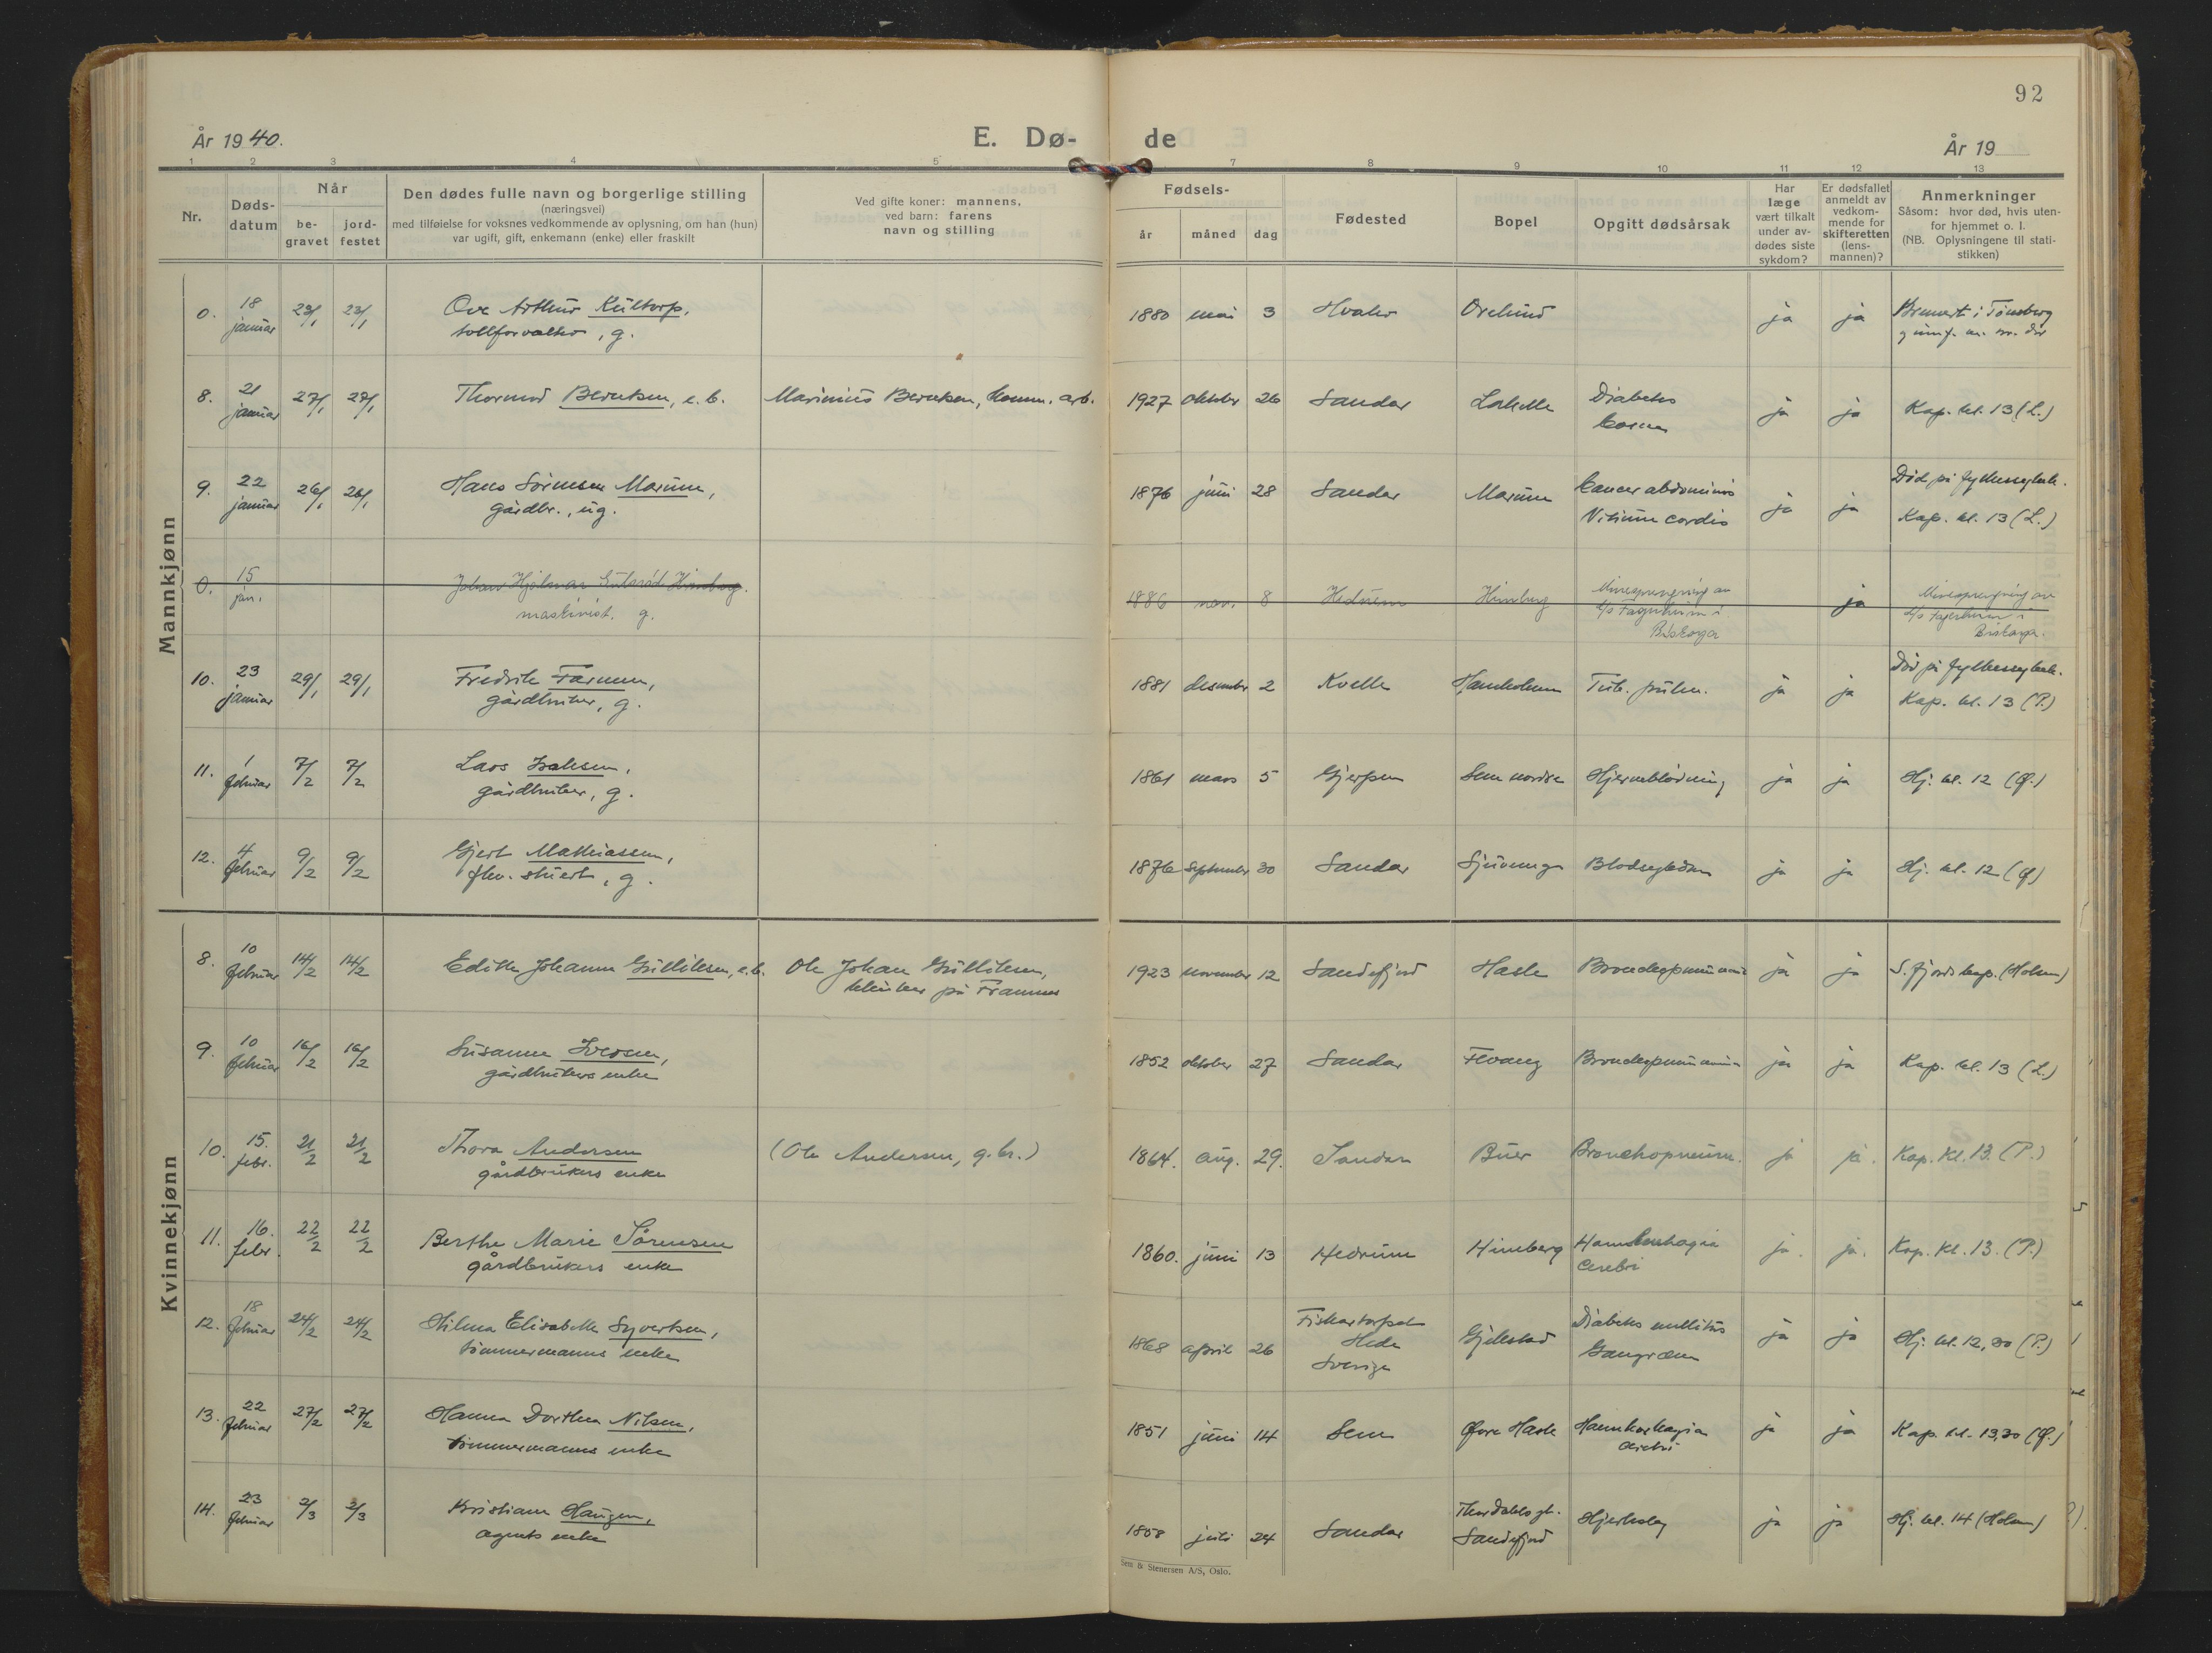 92
År 1940.
E. Dø-
de
År 19
1 2 3 4 5 7 8 9 10 11 12 13
Nr.
Døds-
datum
Når
be-
gravet
jord-
festet
Den dødes fulle navn og borgerlige stilling
(næringsvei)
med tilføielse for voksnes vedkommende av oplysning, om han (hun)
var ugift, gift, enkemann (enke) eller fraskilt
Ved gifte koner: mannens,
ved barn: farens
navn og stilling
Fødsels-
år måned dag
Fødested
Bopel
Opgitt dødsårsak
Har
læge
vært tilkalt
under av-
dødes siste
sykdom?
Er dødsfallet
anmeldt av
vedkom-
mende for
skifteretten
(lens-
mannen)?
Anmerkninger
Såsom: hvor død, hvis uten-
for hjemmet o. l.
(NB. Oplysningene til stati-
stikken)
Mannkjønn
0. 18 januar 23/1 23/1 Ove Arthur Kultorp, 1880 mai 3 Hvaler ja ja Brennert i Tønsberg
tollforvalter, g.
8. 21 januar 27/1 27/1 Thormod Berntsen, e.b. Marinius Berntsen, komm. arb. 1927 oktober 26 Sandar Diabetes ja ja Kap. kl. 13 (L.)
Coma
9. 22 januar 26/1 26/1 Hans Sørensen Marum, 1876 juni 28 Sandar Marum Cancer abdominis ja ja Død på fylkessykeh.
gårdbr., ug. Vitium cordis Kap. kl. 13 (L.)
0. 15 jan. Johan Hjalmar Himberg. 1886 nov. 8 Hedrum Himberg Minesprengning av ja Minesprengning av
maskinist. g. s/s Fagerheim i s/s Fagerheim i
Biskaya Biskaya.
10. 23 januar 29/1 29/1 Fredrik Farmen, 1881 desember 2 Kvelle Tub. pulm. ja ja Død på fylkessykeh.
gårdbruker, g. Kap. kl. 13 (P.)
11. 1 februar 7/2 7/2 Lars Isaksen, 1861 mars 5 Gjerpen Sem nordre Hjerneblødning ja ja Hj. kl. 12 (Ø.)
gårdbruker, g.
12. 4 februar 9/2 9/2 Gjert Mathiassen, 1876 september 30 Sandar ja ja Hj. kl. 12 (Ø)
fhv. stuert, g.
Kvinnekjønn
8. 10 februar 14/2 14/2 Edith Johanne Gulliksen, e.b. Ole Johan Gulliksen, 1923 november 12 Sandefjord Hasle Bronchopneumoni ja ja S.fjords kap. (Holm)
på Framnes
9. 10 februar 16/2 16/2 Susanne Iversen, 1852 oktober 27 Sandar Fevang Bronchopneumonia ja ja Kap. kl. 13 (L.)
gårdbrukers enke
10. 15. febr. 21/2 21/2 Thora Andersen (Ole Andersen, g.br.) 1864. aug. 29. Sandar Buer Bronchopneum. ja ja. Kap. Kl. 13. (P.)
gårdbrukers enke
11. 16. febr. 22/2 22/2 Berthe Marie Sørensen 1860. juni 13 Hedrum Himberg Hæmorrhagia ja. ja. Kap. Kl. 13. (P.)
gårdbrukers enke Cerebri
12. 18 februar 24/2 24/2 Hilma Elisabeth Syvertsen, 1868 april 26 Hede Gjekstad Diabetes mellitus ja ja Hj. kl. 12,30 (P.)
tømmermanns enke Sverige Gangræn
13. 22 februar 27/2 27/2 Hanna Dorthea Nilsen, 1851 juni 14 Sem Øvre Hasle Hæmorrhagia ja ja Kap. kl. 13,30 (Ø.)
tømmermanns enke cerebri
14. 23 februar 2/3 2/3 Kristiane Haugen, 1858 juli 24 Sandar Thor Dahls gt. Hjerteslag ja ja Hj. kl. 14 (Holm)
agents enke Sandefjord
Sem & Stenersen A/S, Oslo.